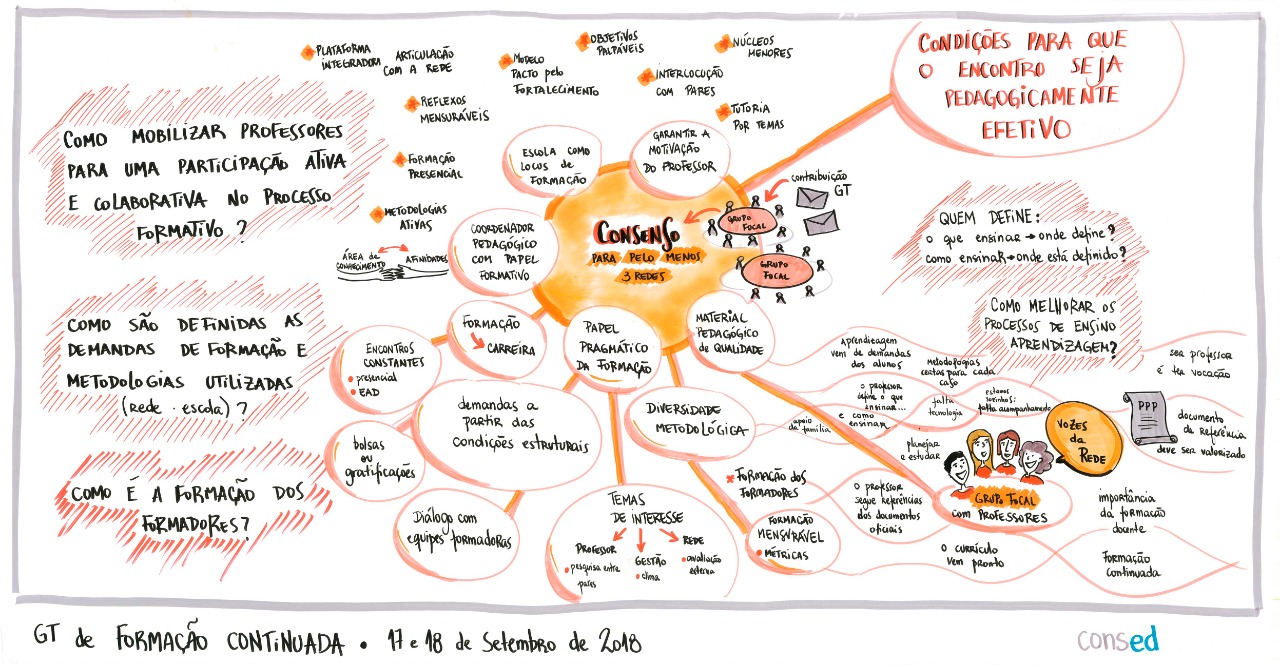 PLATAFORMA
INTEGRADORA
ARTICULAÇÃO
COM A REDE
MODELO
PACTO pelo
FORTALECIMENTO
OBJETIVOS
PALPÁVEIS
INTERLOCUÇÃO
COM PARES
NÚCLEOS
MENORES
TUTORIA
POR TEMAS
REFLEXOS
MENSURÁVEIS
FORMAÇÃO
PRESENCIAL
METODOLOGIAS
ATIVAS
ÁREA de
CONHECIMENTO
AFINIDADES
CONDIÇÕES PARA QUE
O ENCONTRO SEJA
PEDAGOGICAMENTE
EFETIVO
COMO MOBILIZAR PROFESSORES
PARA UMA PARTICIPAÇÃO ATIVA
E COLABORATIVA NO PROCESSO
FORMATIVO?
COMO SÃO DEFINIDAS AS
DEMANDAS DE FORMAÇÃO E
METODOLOGIAS UTILIZADAS
(rede · escola)?
COMO É A FORMAÇÃO DOS
FORMADORES?
ESCOLA COMO
LOCUS DE
FORMAÇÃO
GARANTIR A
MOTIVAÇÃO
DO PROFESSOR
COORDENADOR
PEDAGÓGICO
COM PAPEL
FORMATIVO
CONSENSO
PARA PELO MENOS
3 REDES
GRUPO
FOCAL
GRUPO
FOCAL
contribuição
GT
QUEM DEFINE:
o que ensinar → onde define?
como ensinar → onde está definido?
COMO MELHORAR OS
PROCESSOS DE ENSINO
APRENDIZAGEM?
FORMAÇÃO
CARREIRA
PAPEL
PRAGMÁTICO
DA FORMAÇÃO
MATERIAL
PEDAGÓGICO
de QUALIDADE
ENCONTROS
CONSTANTES
• presencial
• EAD
demandas a
partir das
condições estruturais
bolsas
ou
gratificações
Diálogo com
equipes formadoras
DIVERSIDADE
METODOLÓGICA
TEMAS
DE INTERESSE
PROFESSOR
• pesquisa entre
pares
GESTÃO
• clima
REDE
• avaliação
externa
FORMAÇÃO DOS
FORMADORES
FORMAÇÃO
MENSURÁVEL
• MÉTRICAS
Aprendizagem
vem de demandas
dos alunos
metodologias
certas para cada
caso
o professor
define o que
ensinar...
e como
ensinar
apoio
da família
falta
tecnologia
estamos
sozinhos:
falta acompanhamento
planejar
e estudar
o professor
segue referências
dos documentos
oficiais
o currículo
vem pronto
GRUPO FOCAL
com PROFESSORES
VOZES
da
REDE
ser professor
é ter vocação
PPP
documento
de referência
deve ser valorizado
importância
da formação
docente
Formação
continuada
GT de FORMAÇÃO CONTINUADA • 17 e 18 de Setembro de 2018
consed